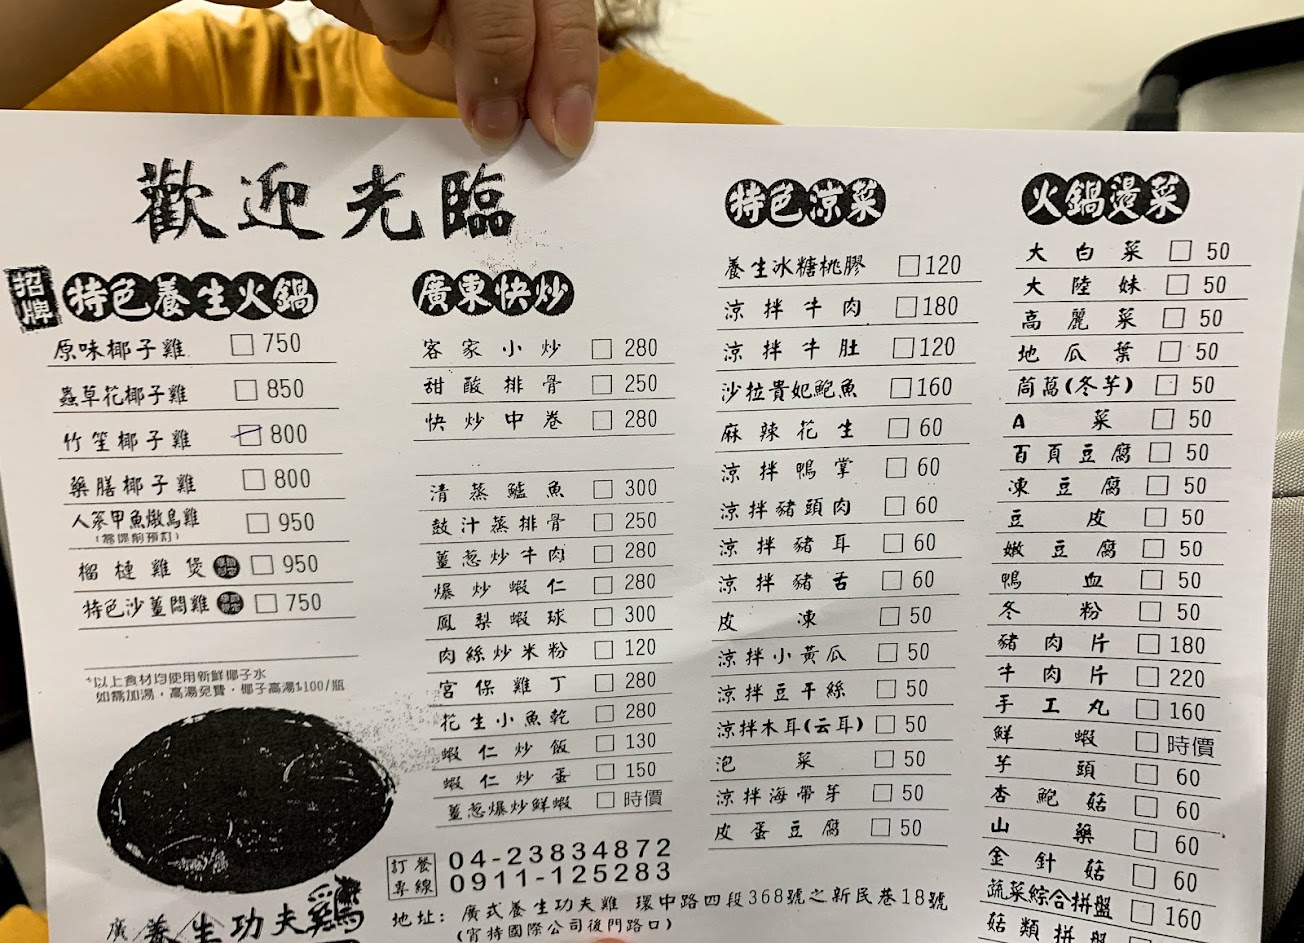 歡迎光臨
招牌
特色養生火鍋
原味椰子雞 □750
蟲草花椰子雞 □850
竹笙椰子雞 □800
藥膳椰子雞 □800
人蔘甲魚燉烏雞 □950
(需提前預訂)
榴槤雞煲 □950
特色沙薑悶雞 □750
*以上食材均使用新鮮椰子水
如需加湯,高湯免費,椰子高湯$100/瓶
廣東快炒
客家小炒 □ 280
甜酸排骨 □ 250
快炒中卷 □ 280
清蒸鱸魚 □ 300
鼓汁蒸排骨 □ 250
薑蔥炒牛肉 □ 280
爆炒蝦仁 □ 280
鳳梨蝦球 □ 300
肉絲炒米粉 □ 120
宮保雞丁 □ 280
花生小魚乾 □ 280
蝦仁炒飯 □ 130
蝦仁炒蛋 □ 150
薑蔥爆炒鮮蝦 □ 時價
特色涼菜
養生冰糖桃膠 □120
涼拌牛肉 □180
涼拌牛肚 □120
沙拉貴妃鮑魚 □160
麻辣花生 □ 60
涼拌鴨掌 □ 60
涼拌豬頭肉 □ 60
涼拌豬耳 □ 60
涼拌豬舌 □ 60
皮凍 □ 50
涼拌小黃瓜 □ 50
涼拌豆干絲 □ 50
涼拌木耳(云耳) □ 50
泡菜 □ 50
涼拌海帶芽 □ 50
皮蛋豆腐 □ 50
火鍋燙菜
大白菜 □ 50
大陸妹 □ 50
高麗菜 □ 50
地瓜葉 □ 50
茼萵(冬芋) □ 50
A菜 □ 50
百頁豆腐 □ 50
凍豆腐 □ 50
豆皮 □ 50
嫩豆腐 □ 50
鴨血 □ 50
冬粉 □ 50
豬肉片 □ 180
牛肉片 □ 220
手工丸 □ 160
鮮蝦 □ 時價
芋頭 □ 60
杏鮑菇 □ 60
山藥 □ 60
金針菇 □ 60
蔬菜綜合拼盤 □ 160
菇類拼盤
訂餐專線
04-23834872
0911-125283
地址: 廣式養生功夫雞 環中路四段368號之新民巷18號
(宵特國際公司後門路口)
廣養生功夫雞